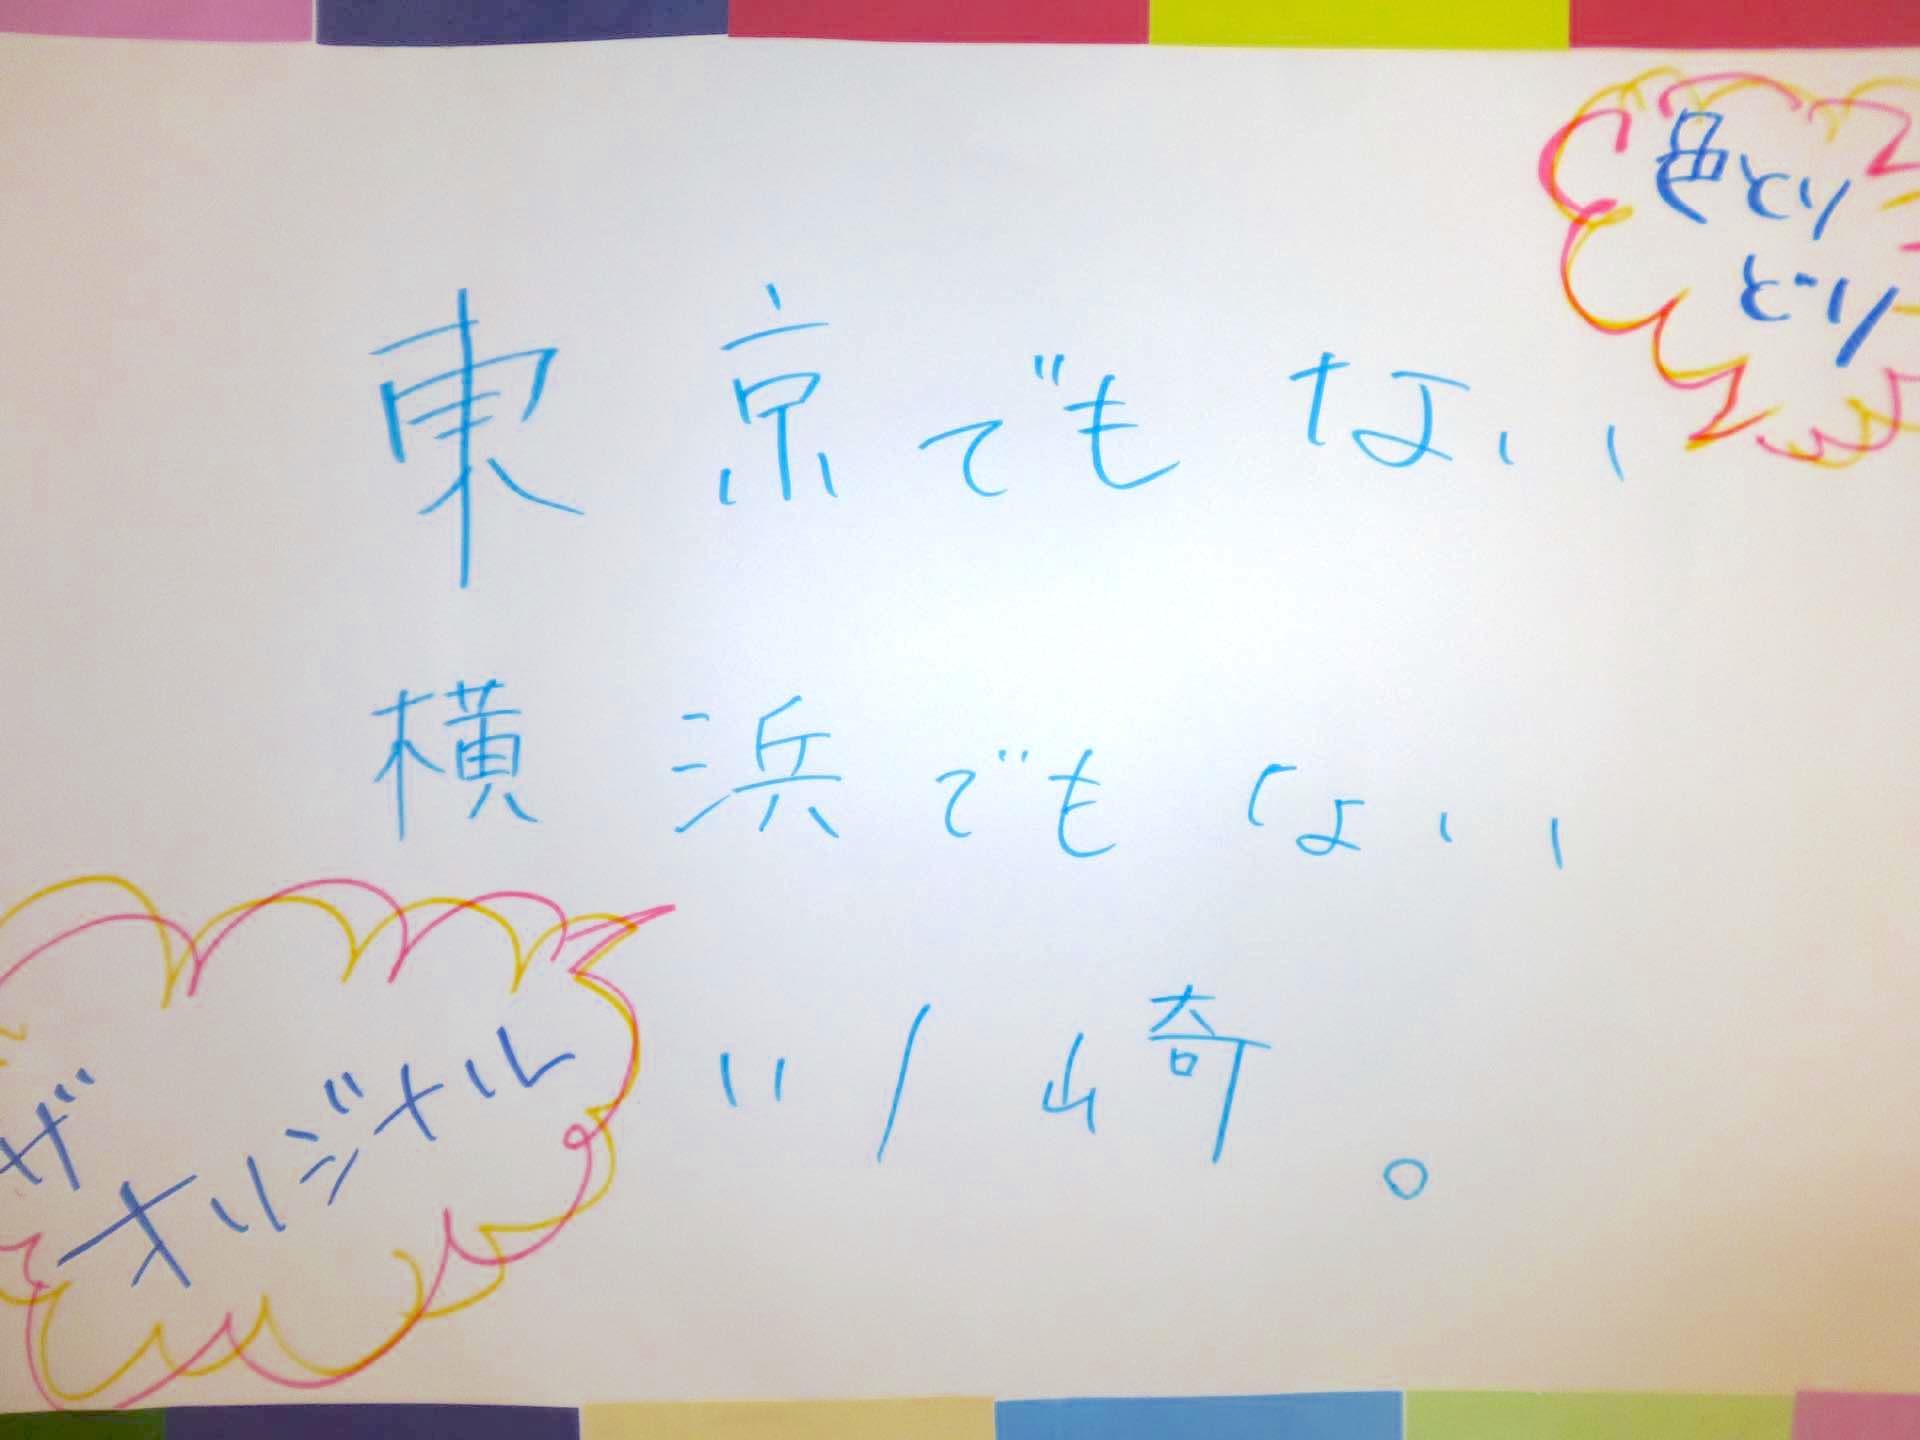 色とり
どり
東京でもない
横浜でもない
川崎。
ザ
オリジナル